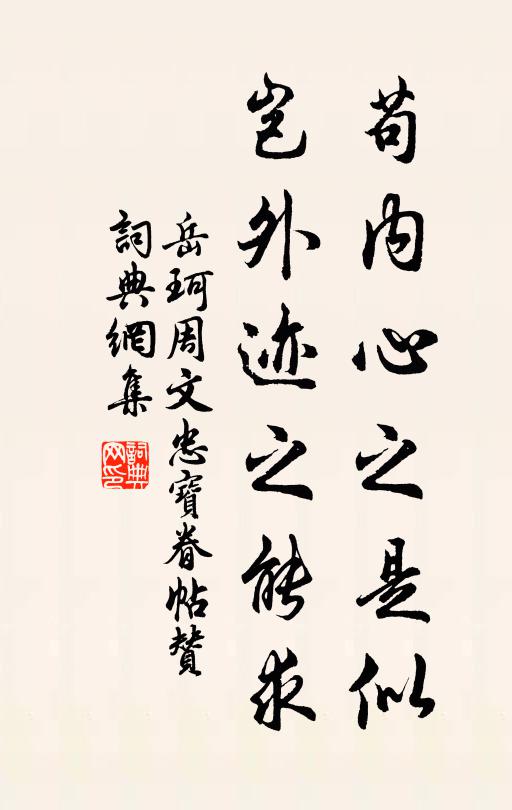 苟内心之是似
岂外迹之能求
岳珂周文忠寶眷帖賛
詞典網集
詞典網印